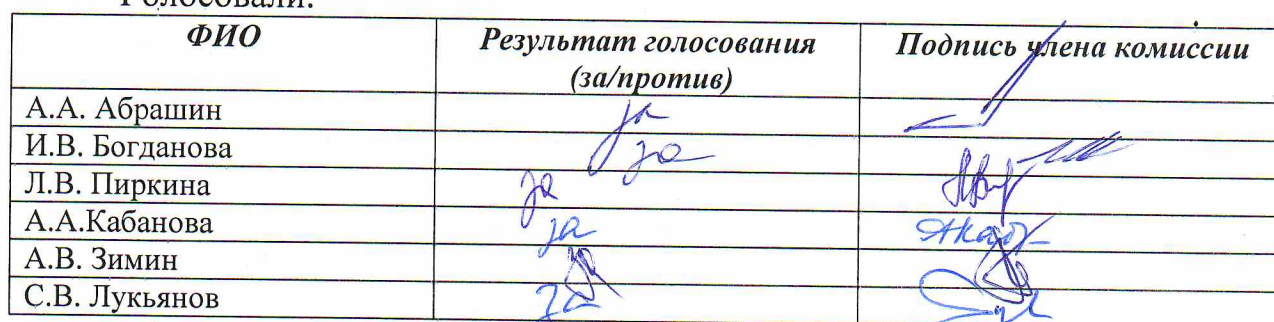 Голосовали:
ФИО Результат голосования (за/против) Подпись члена комиссии
А.А. Абрашин за
И.В. Богданова за
Л.В. Пиркина за
А.А.Кабанова за
А.В. Зимин
С.В. Лукьянов за